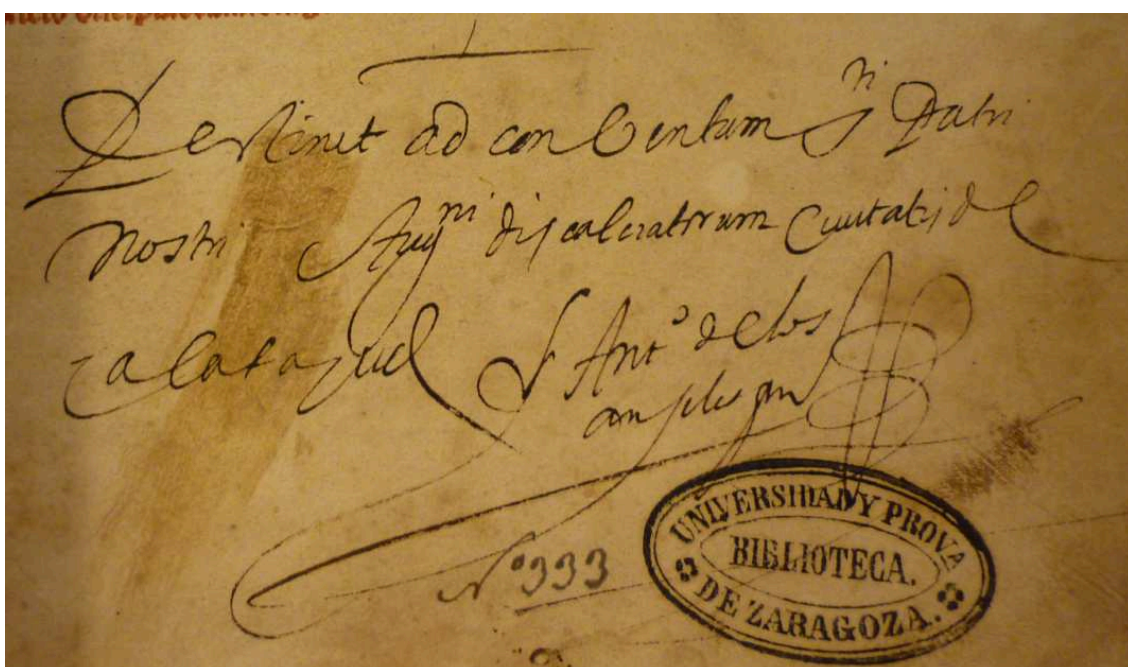 Pertinet ad conbentum S.ti Patri
nostri Aug.ni discalciatorum Ciuitatis de
calatayud f Ant.o de los
angeles
UNIVERSIDAD Y PROVA
BIBLIOTECA.
DE ZARAGOZA.
Nº 333